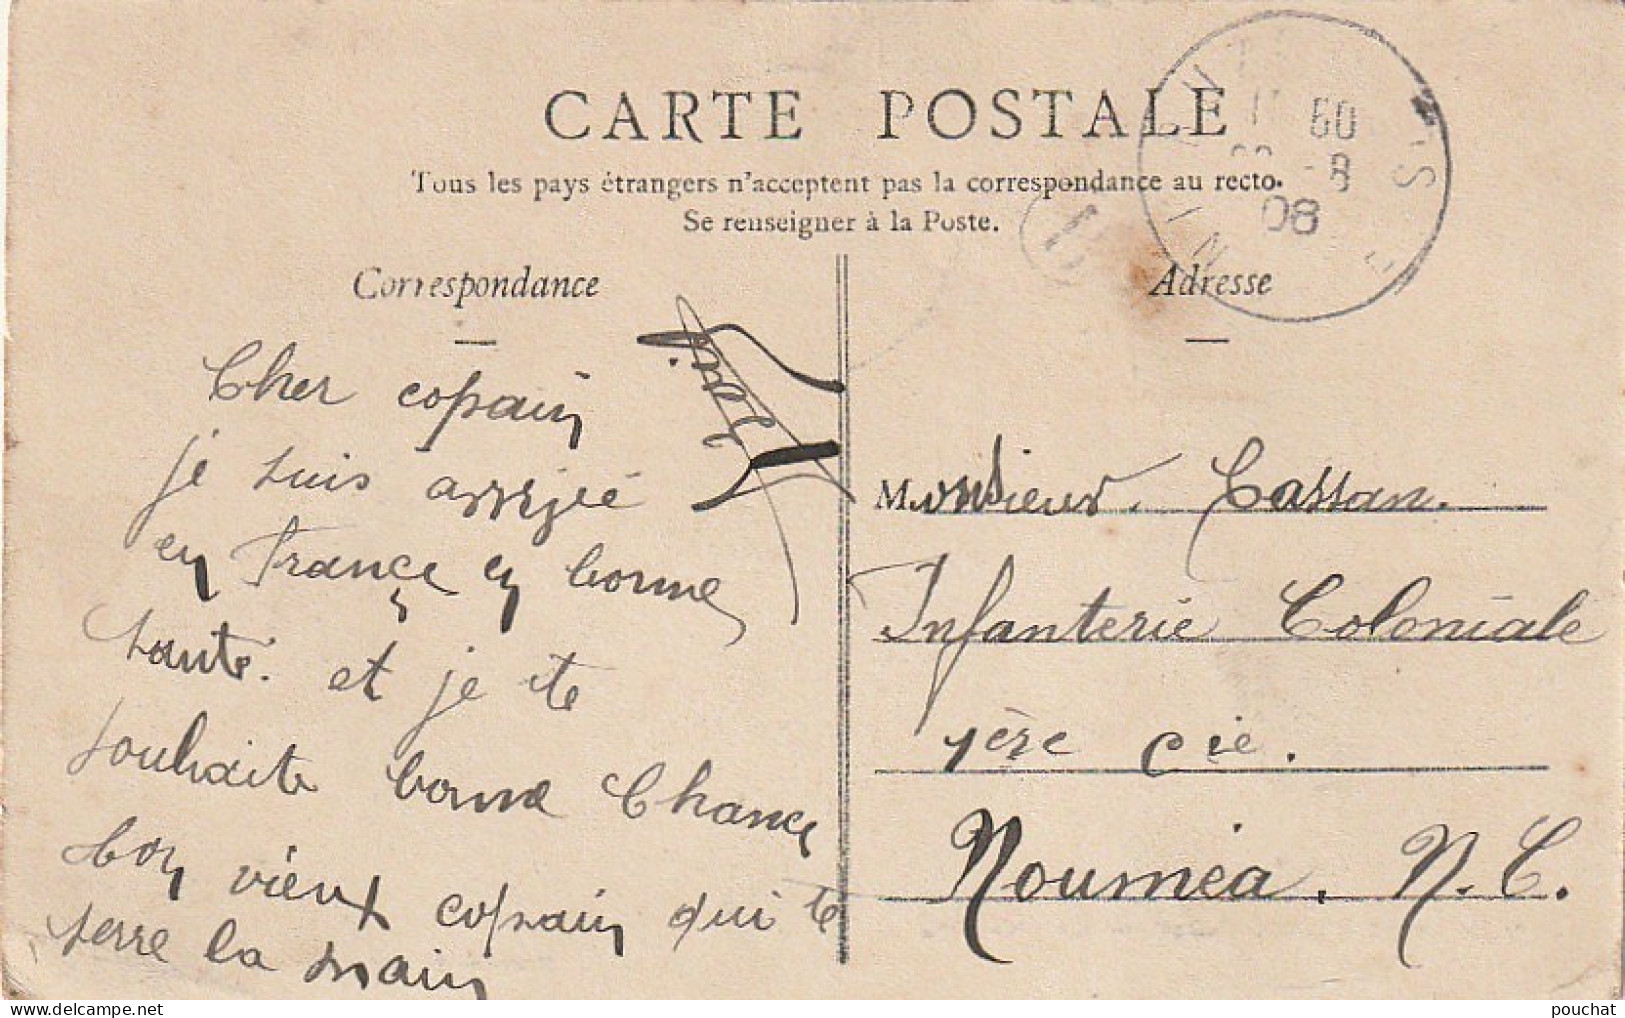 CARTE POSTALE
Tous les pays étrangers n'acceptent pas la correspondance au recto.
Se renseigner à la Poste.
Correspondance
Cher copain
je suis arrivé
en France en bonne
santé. et je te
souhaite bonne Chance
ton vieux copain qui te
serre la main
Adresse
Monsieur. Cassan.
Infanterie Coloniale
1ère Cie.
Nouméa. N. C.
50
-8
08
pouchat